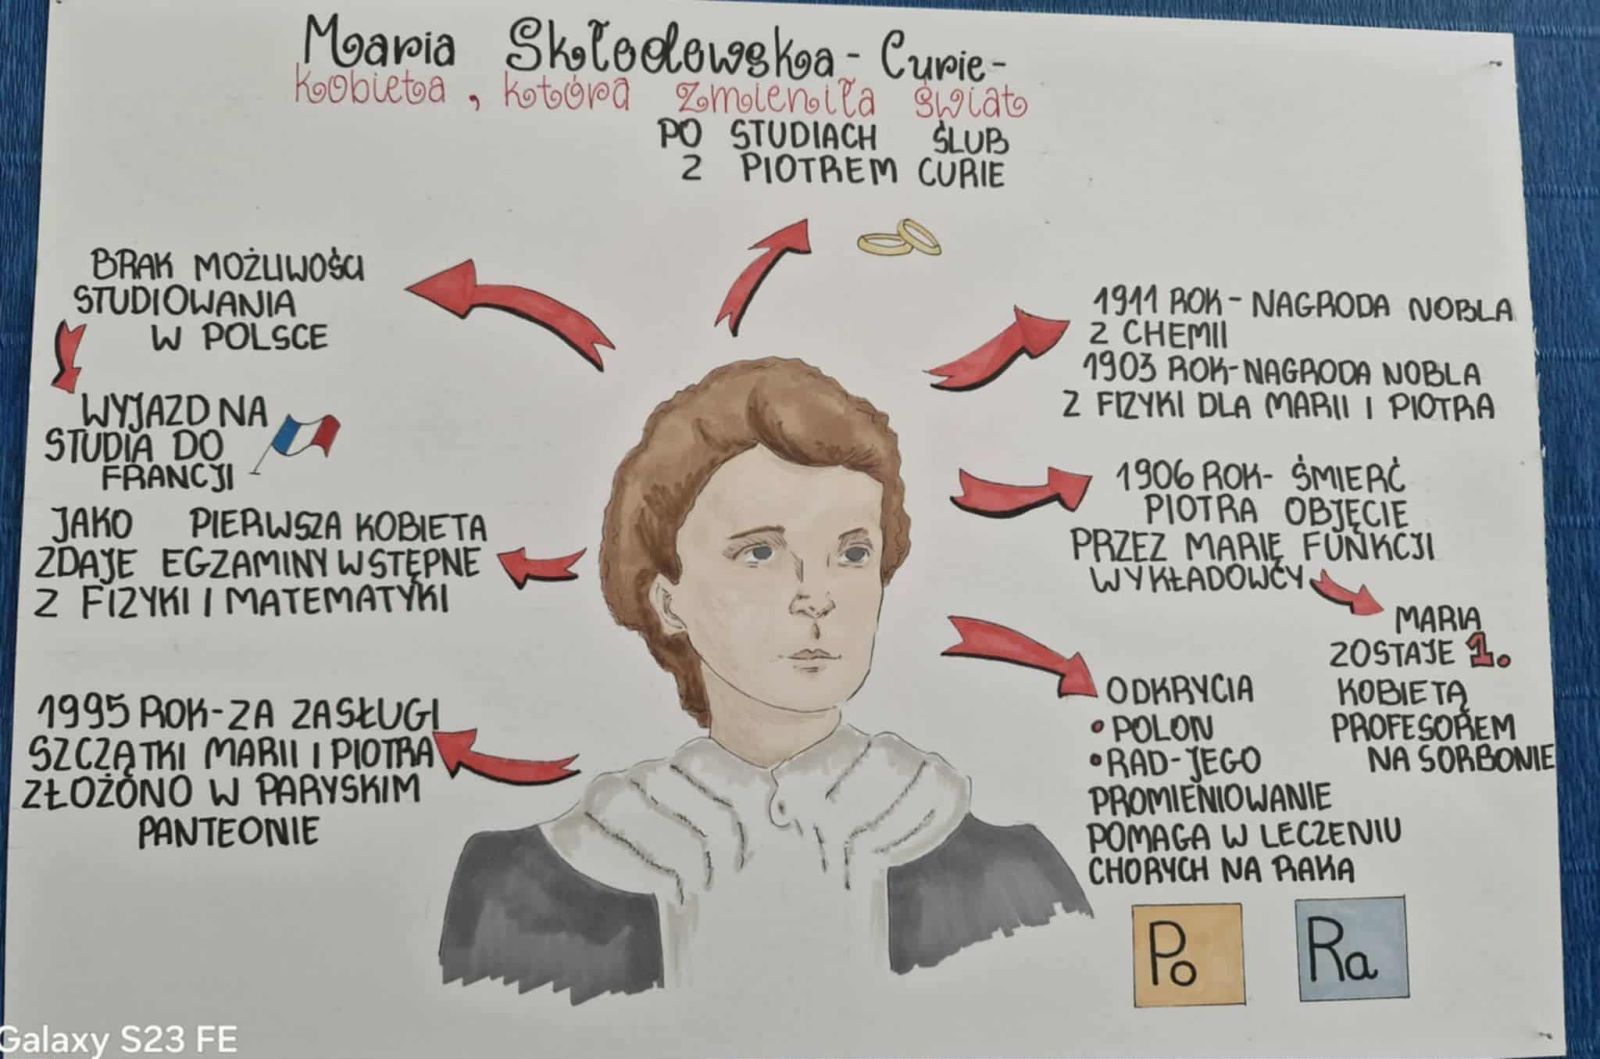 Maria Skłodowska - Curie -
kobieta, która zmieniła świat
PO STUDIACH ŚLUB
Z PIOTREM CURIE
BRAK MOŻLIWOŚCI
STUDIOWANIA
W POLSCE
WYJAZD NA
STUDIA DO
FRANCJI
JAKO PIERWSZA KOBIETA
ZDAJE EGZAMINY WSTĘPNE
Z FIZYKI I MATEMATYKI
1995 ROK-ZA ZASŁUGI
SZCZĄTKI MARII I PIOTRA
ZŁOŻONO W PARYSKIM
PANTEONIE
1911 ROK - NAGRODA NOBLA
Z CHEMII
1903 ROK-NAGRODA NOBLA
Z FIZYKI DLA MARII I PIOTRA
1906 ROK- ŚMIERĆ
PIOTRA OBJĘCIE
PRZEZ MARIĘ FUNKCJI
WYKŁADOWCY
MARIA
ZOSTAJE 1.
KOBIETĄ
PROFESOREM
NA SORBONIE
ODKRYCIA
• POLON
• RAD-JEGO
PROMIENIOWANIE
POMAGA W LECZENIU
CHORYCH NA RAKA
Po
Ra
Galaxy S23 FE